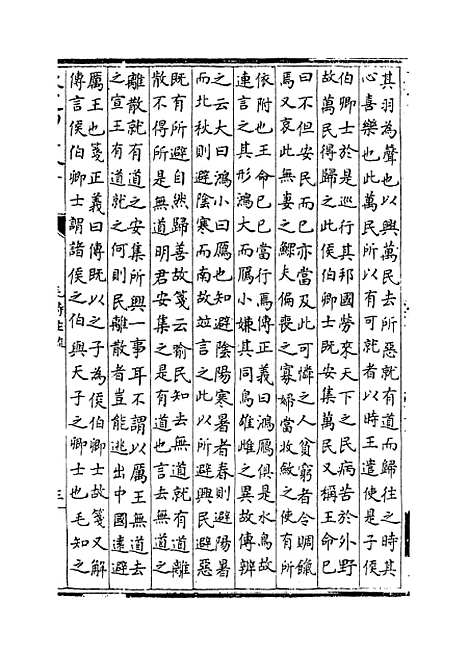 其羽為聲也以興萬民去所惡就有道而歸往之時其
心喜樂也此萬民所以有可就者以時王遣使是子侯
伯卿士於是巡行其邦國勞來天下之民病苦於外野
故萬民得歸之此侯伯卿士既安集萬民又稱王命己
曰不但安民而已亦當及此可憐之人貧窮者令賙餼
焉又哀此無妻之鰥夫偏喪之寡婦當收斂之使有所
依附也王命己已當行焉傳正義曰鴻鴈俱是水鳥故
連言之其形鴻大而鴈小嫌其同鳥雄雌之異故傳辨
之云大曰鴻小曰鴈也知避陰陽寒暑者春則避陽暑
而北秋則避陰寒而南故竝言之此以所避興民避惡
既有所避自然歸善故箋云喻民知去無道就有道離
散不得所是無道明君安集之是有道也言民去無道
離散就有道之安集所興一事耳不謂以厲王無道去
之宣王有道就之何則民離散者豈能逃出中國遠避
厲王也箋正義曰傳既以之子為侯伯卿士故箋又解
傳言侯伯卿士謂諸侯之伯與天子之卿士也毛知之